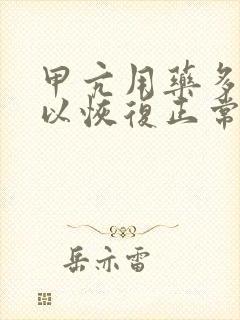 甲亢用藥多
以恢復正常
岳亦雷